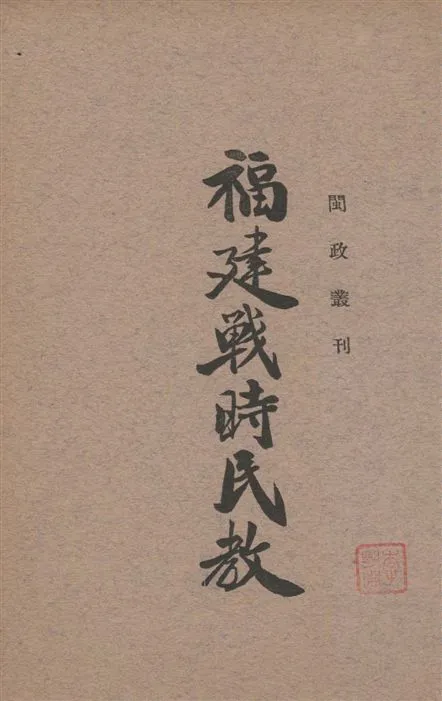 閩政叢刊
福建戰時民教